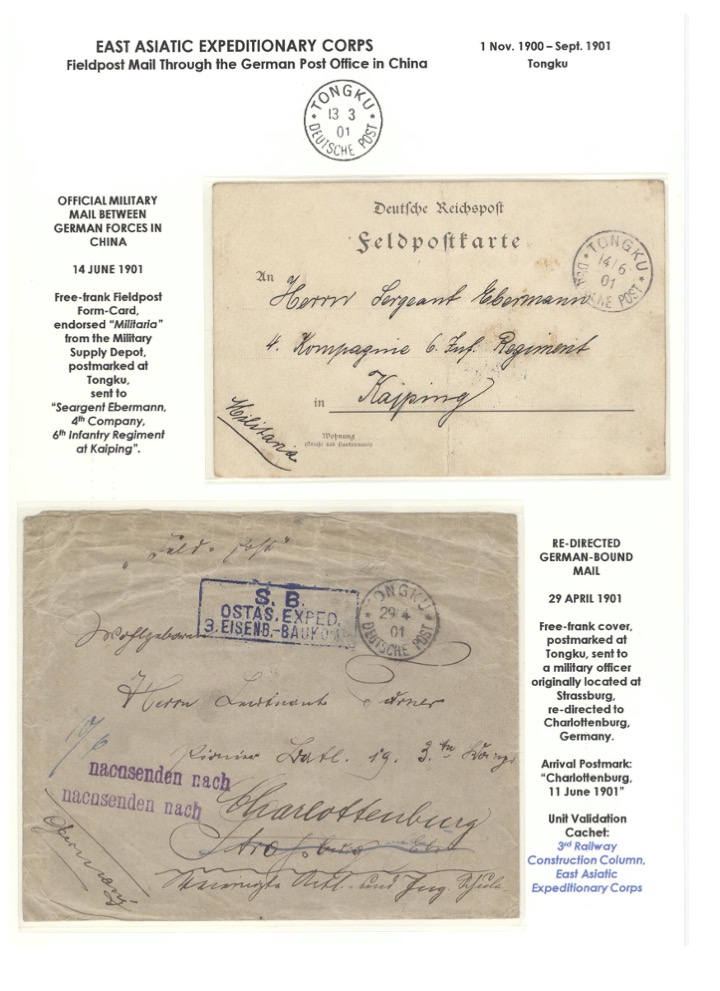 EAST ASIATIC EXPEDITIONARY CORPS
Fieldpost Mail Through the German Post Office in China
1 Nov. 1900 – Sept. 1901
Tongku
TONGKU
13 3
01
DEUTSCHE POST
OFFICIAL MILITARY
MAIL BETWEEN
GERMAN FORCES IN
CHINA
14 JUNE 1901
Free-frank Fieldpost
Form-Card,
endorsed "Militaria"
from the Military
Supply Depot,
postmarked at
Tongku,
sent to
"Seargent Ebermann,
4th Company,
6th Infantry Regiment
at Kaiping".
Deutsche Reichspost
Feldpostkarte
TONGKU
14/6
01
An
Herrn Sergeant Ebermann
4. Kompagnie 6. Inf. Regiment
in Kaiping
Militaria
Wohnung
(Straße und Hausnummer)
"Feld-post"
S. B.
OSTAS. EXPED.
3. EISENB.-BAUKO
TONGKU
29 4
01
DEUTSCHE POST
Wohlgeboren
Herrn Leutnant
Pionier Batl. 19. 3.
nachsenden nach
nachsenden nach
Charlottenburg
Germany
Vereinigte Artl. und Ing. Schule
RE-DIRECTED
GERMAN-BOUND
MAIL
29 APRIL 1901
Free-frank cover,
postmarked at
Tongku, sent to
a military officer
originally located at
Strassburg,
re-directed to
Charlottenburg,
Germany.
Arrival Postmark:
"Charlottenburg,
11 June 1901"
Unit Validation
Cachet:
3rd Railway
Construction Column,
East Asiatic
Expeditionary Corps